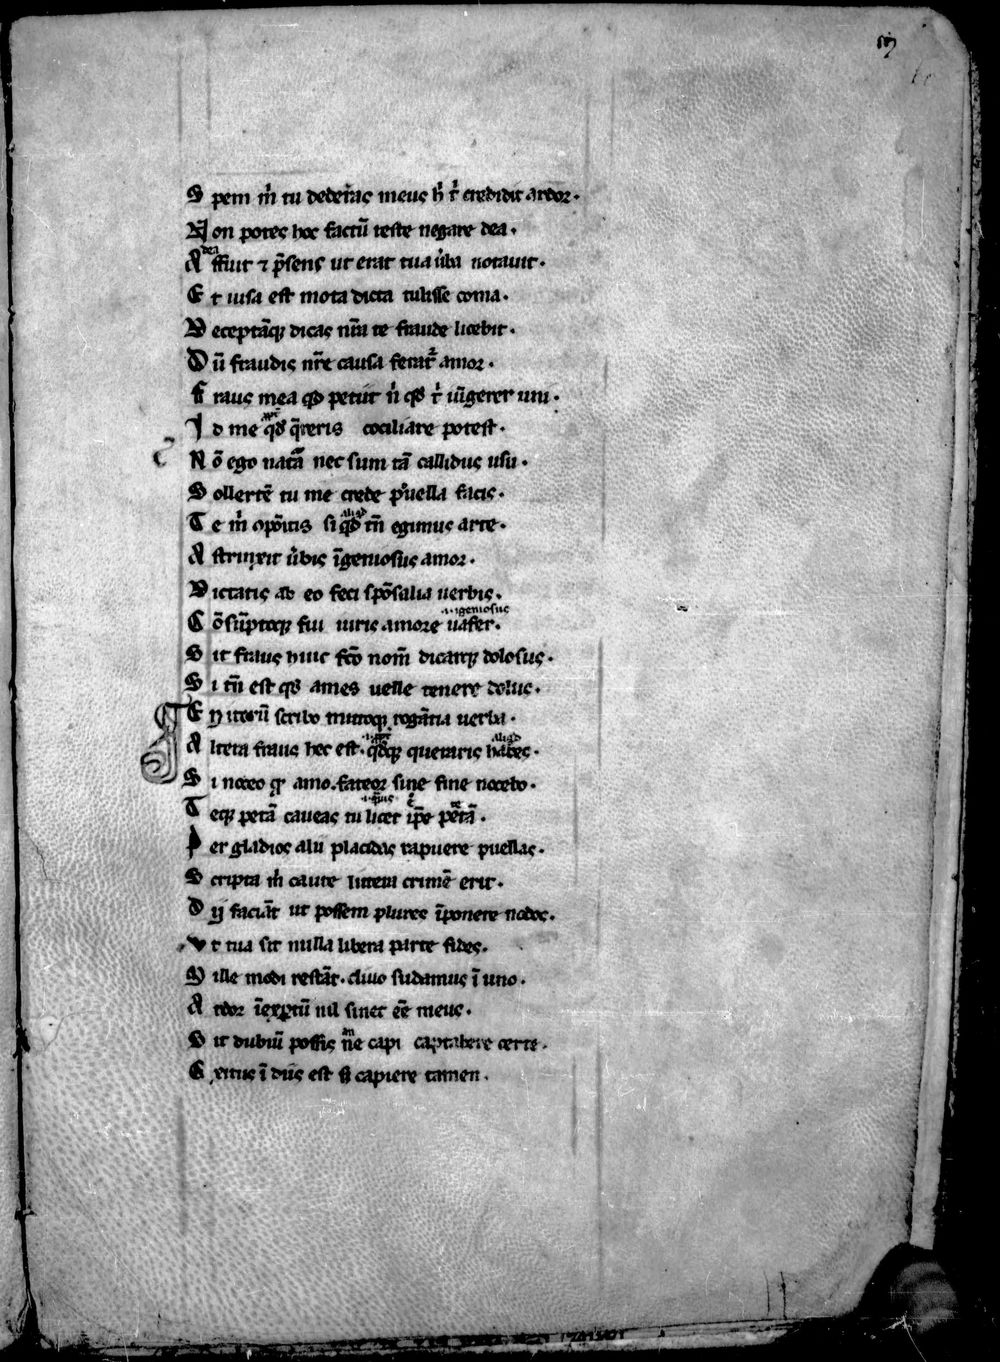 S pem m̄ tu dederas meus h̄ t̄ credidit ardor.
N on potes hoc factū teste negare dea.
A ffuit ⁊ p̄sens ut erat tua ūba notauit.
E t iusa est mota dicta tulisse coma.
D eceptāq; dicas nr̄a te fraude licebit.
D ū fraudis nr̄e causa feratr̄ amor.
F raus mea qd petiit n̄ qd t̄ iūgerer uni.
I d me qd q̄reris cociliare potest.
N ō ego natā nec sum tā callidus usu.
S ollertē tu me crede puella facis.
T e m̄ cōpōitis si qd tn̄ egimus arte.
A strinxit ūbis īgeniosus amor.
D ictatis ab eo feci spōsalia uerbis.
C ōsūptoq; fui iuris amore uafer.
S it fraus huic fcō nom̄ dicarq; dolosus.
S i tn̄ est qd ames uelle tenere dolus.
E n iterū scribo mittoq; rogātia uerba.
A ltera fraus hec est. qdq; queraris habes.
S i noceo qr amo. fateor sine fine nocebo.
T eq; petā caueas tu licet ip̄e petā.
P er gladios alii placidas rapuere puellas.
S cripta m̄ caute littera crimē erit.
D ij faciāt ut possem plures īponere nodos.
V t tua sit nulla libera parte fides.
M ille modi restāt. cliuo sudamus ī uno.
A rdor īexptū nil sinet eē meus.
S it dubiū possis ne capi captabere certe.
E xitus ī diis est s; capiere tamen.